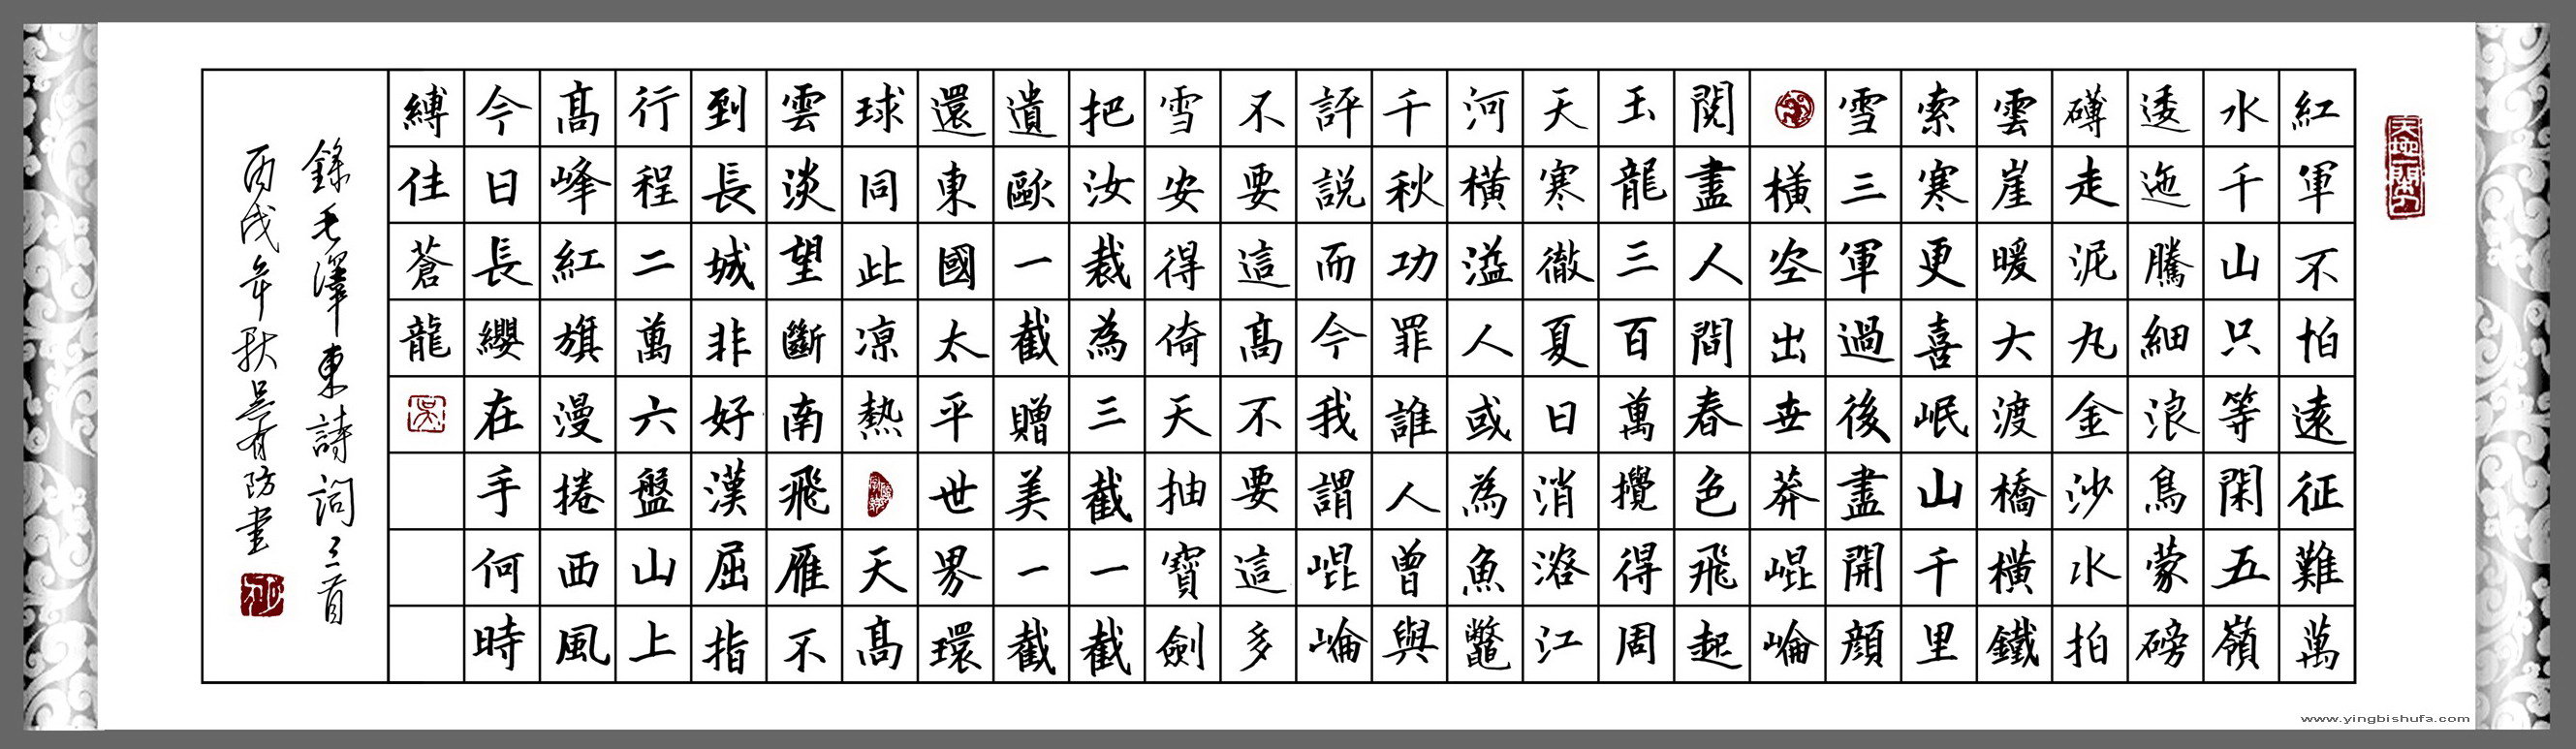 天地一閑人
紅軍不怕遠征難萬
水千山只等閑五嶺
逶迤騰細浪烏蒙磅
礴走泥丸金沙水拍
雲崖暖大渡橋橫鐵
索寒更喜岷山千里
雪三軍過後盡開顔
橫空出世莽崐崘
閱盡人間春色飛起
玉龍三百萬攪得周
天寒徹夏日消溶江
河橫溢人或為魚鼈
千秋功罪誰人曾與
評說而今我謂崐崘
不要這髙不要這多
雪安得倚天抽寶劍
把汝裁為三截一截
遺歐一截贈美一截
還東國太平世界環
球同此凉熱天髙
雲淡望斷南飛雁不
到長城非好漢屈指
行程二萬六盤山上
髙峰紅旗漫捲西風
今日長纓在手何時
縛住蒼龍
吳
錄毛澤東詩詞三首
丙戌年秋吳有防書
www.yingbishufa.com